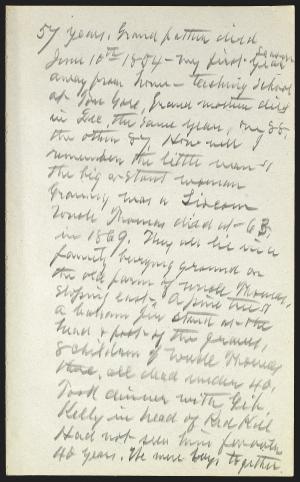 57 years. Grand father died
June 10th 1884 - my first season
away from home - teaching school
at Ton Gore, Grand mother died
in Dec. the same year, one 88
the other 84. How well I
remember the little man &
the big a stout woman
Granny was a Liscom
Uncle Thomas died at 63
in 1869. They all lie in a
family burying ground on
the old farm of Uncle Thomas,
sloping east. A pine tree &
a balsam fir stand at the
head & foot of the graves,
8 children of Uncle Thomas
all dead under 40.
Took dinner with
Kelly in head of Red Kill
Had not seen him for over
40 years. We were boys together.